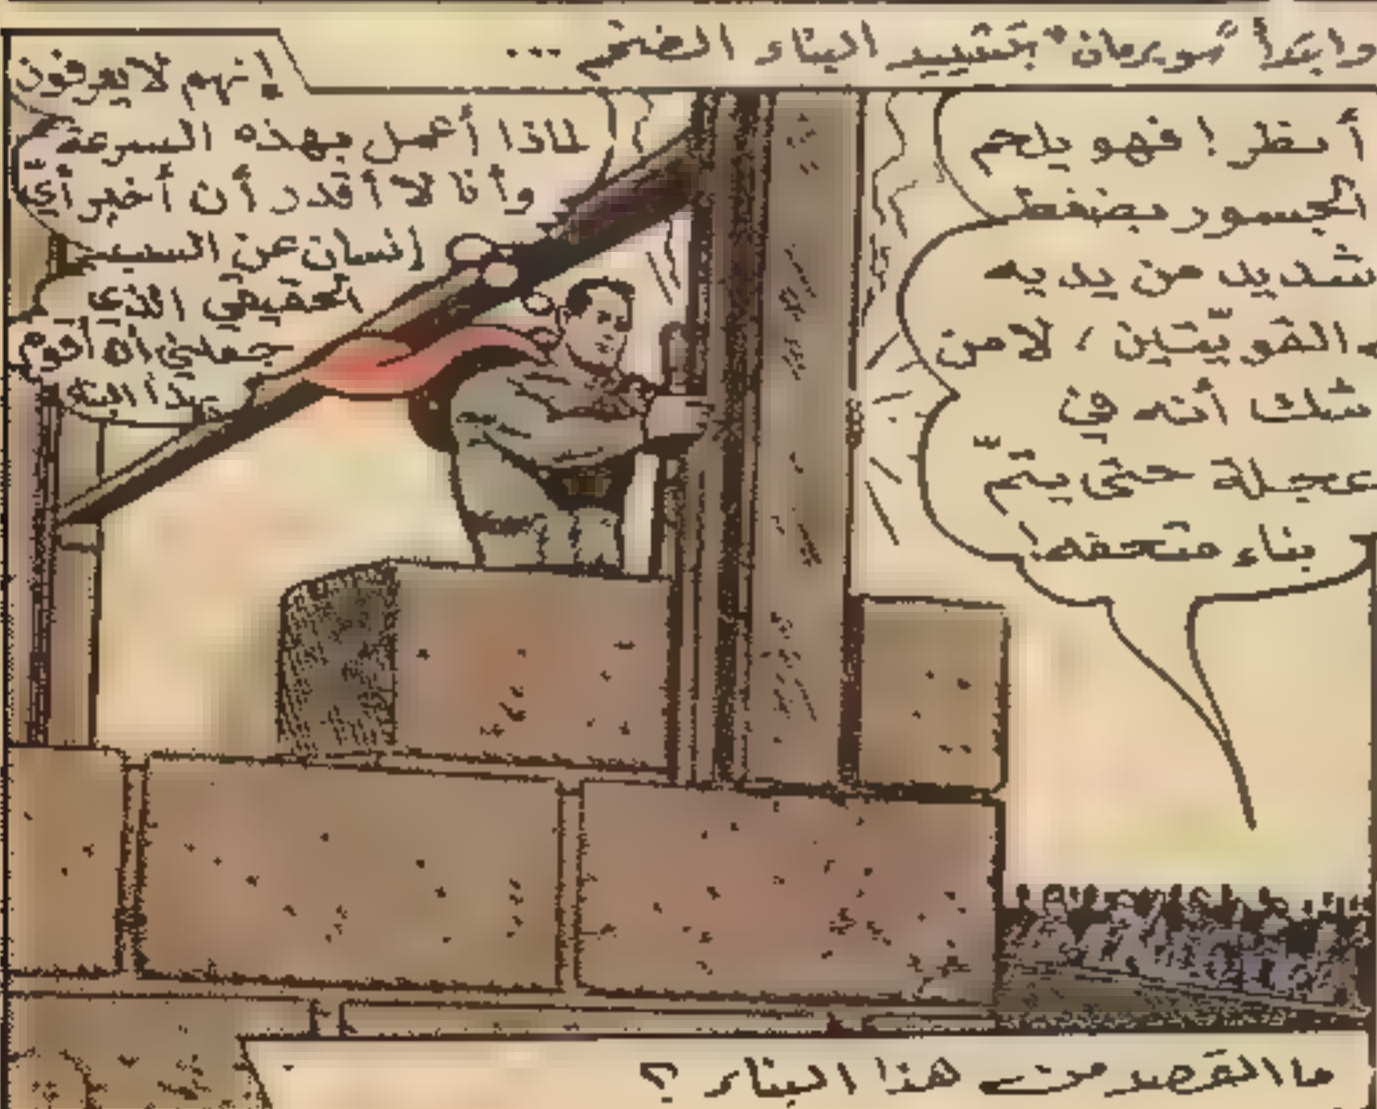 وابتدأ "سوبرمان" بتشييد البناء الضخم ...
أنظر! فهو يلحم
الجسور بضغط
شديد من يديه
القويّتين، لا من
شك أنه في
عجلة حتى يتمّ
بناء متحفه!
إنهم لا يعرفون
لماذا أعمل بهذه السرعة
وأنا لا أقدر أن أخبر أيّ
إنسان عن السبب
الحقيقي الذي
جعلني أن أقوم
بهذا البناء
ما القصد من هذا البناء؟